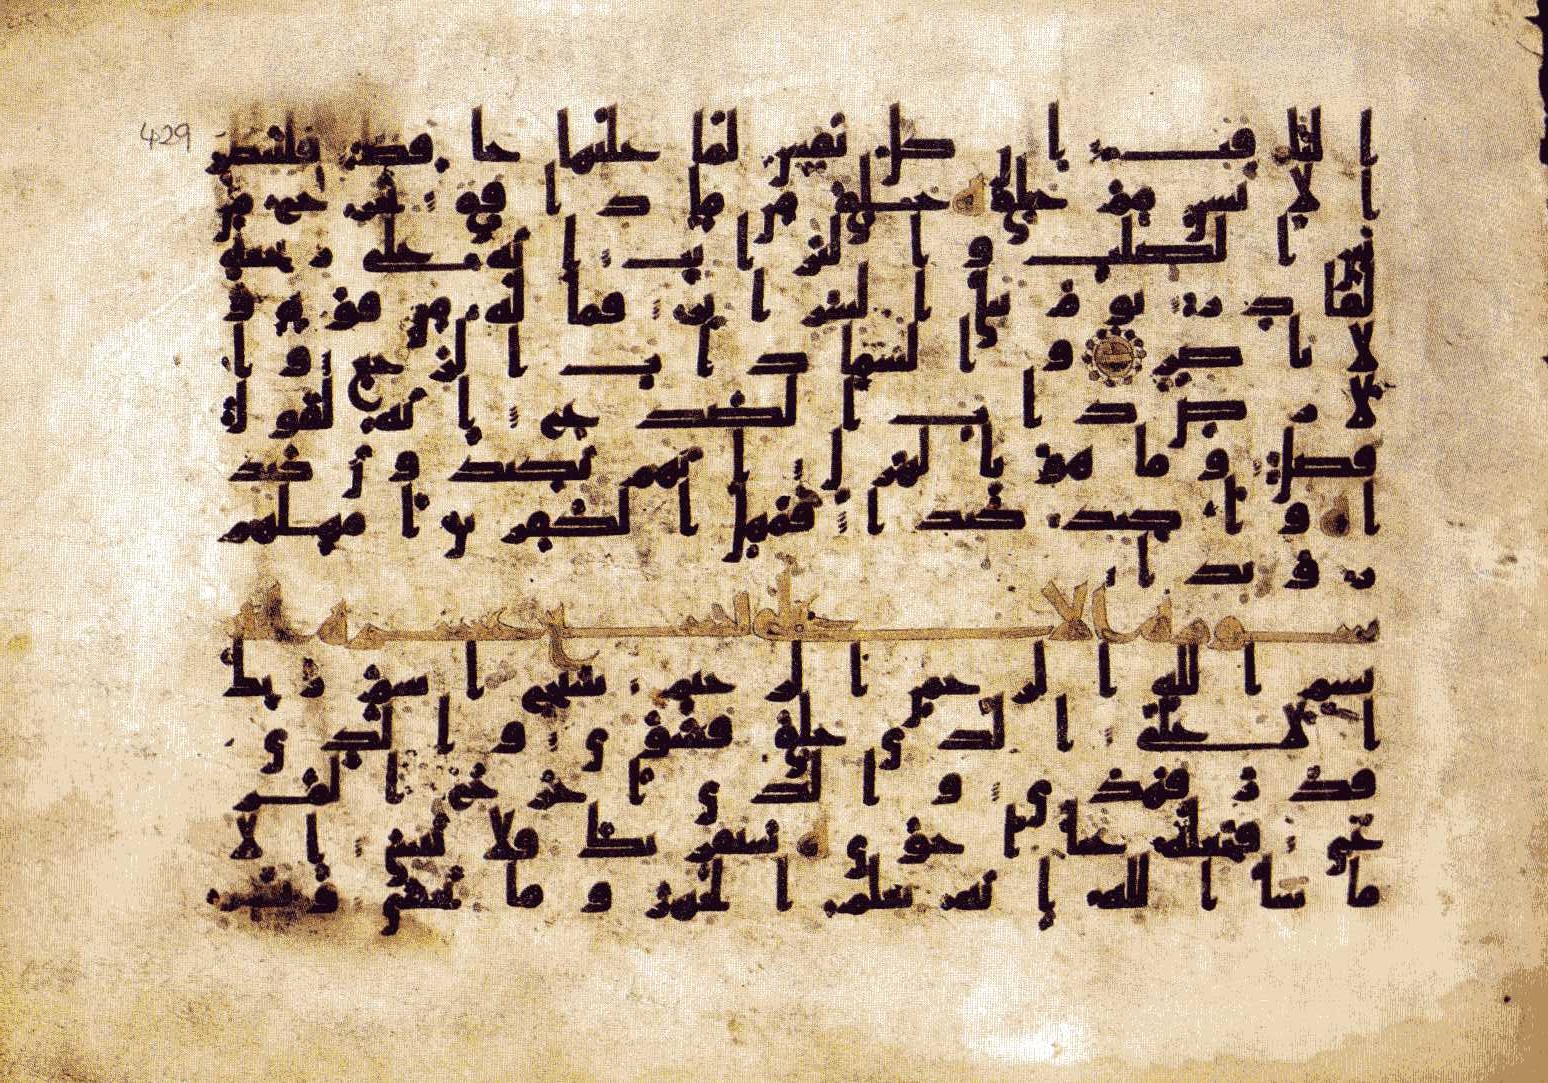 429
الثاقب ان كل نفس لما عليها حافظ فلينظر
الانسن مم خلق خلق من ما دافق يخرج من
بين الصلب والترائب انه على رجعه
لقادر يوم تبلى السرائر فما له من قوة و
لا ناصر والسما ذات الرجع وا
لارض ذات الصدع انه لقول
فصل وما هو بالهزل انهم يكيدون كيد
ا واكيد كيدا فمهل الكفرين امهلهم
رويدا
بسم الله الرحمن الرحيم سبح اسم ربك
الاعلى الذي خلق فسوى والذي
قدر فهدى والذي اخرج المر
عى فجعله غثا احوى سنقرئك فلا تنسى الا
ما شا الله انه يعلم الجهر وما يخفى ونيسر